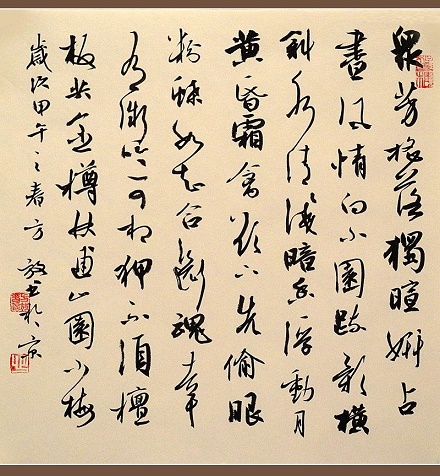 眾芳搖落獨暄妍占
盡風情向小園疏影橫
斜水清淺暗香浮動月
黄昏霜禽欲下先偷眼
粉蝶如知合斷魂幸
有微吟可相狎不須檀
板共金樽林逋山園小梅
歲次甲午之春方书於京